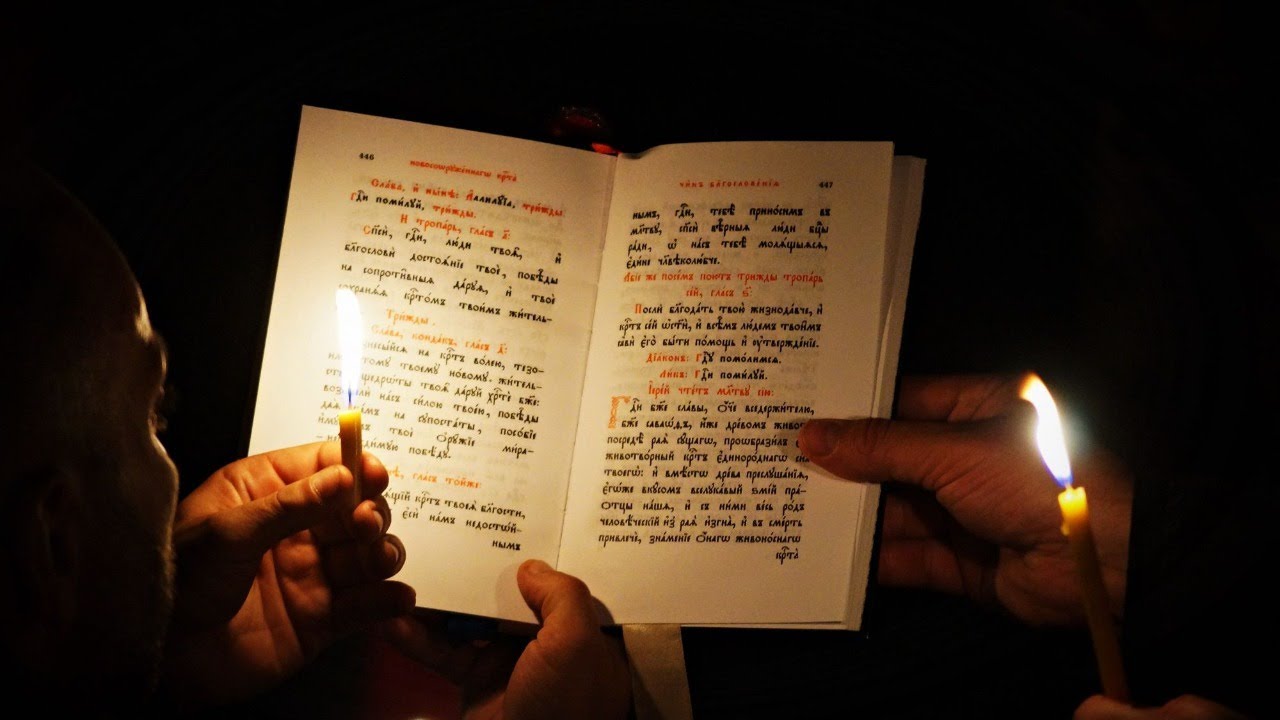 446
новосоꙋрꙋже́ннагѡ крⷭ҇та̀
Сла́ва, и҆ ны́нѣ: А҆ллилꙋ́їа, три́жды.
Гдⷭ҇и поми́лꙋй, три́жды.
И҆ тропа́рь, гла́съ а҃:
Спⷭ҇сѝ, гдⷭ҇и, лю́ди твоѧ̑, и҆
благословѝ достоѧ́нїе твоѐ, побѣ̑ды
на сопроти̑вныѧ да́рꙋѧ, и҆ твоѐ
сохранѧ́ѧ крⷭ҇то́мъ твои́мъ жи́тель-
Три́жды.
Сла́ва, конда́къ, гла́съ д҃:
на крⷭ҇тъ во́лею, тезо-
твоемꙋ̀ но́вомꙋ жи́тель-
щедрѡ́ты твоѧ̑ да́рꙋй хрⷭ҇тѐ бж҃е:
на́съ си́лою твое́ю, побѣ̑ды
на сꙋпоста́ты, посо́бїе
твоѐ ѻ҆рꙋ́жїе ми́ра-
побѣ́дꙋ.
гла́съ то́йже:
крⷭ҇тъ твоеѧ̀ бл҃гости,
є҆сѝ на́мъ недостѡ́й-
нымъ
447
чи́нъ бл҃гослове́нїѧ
нымъ, гдⷭ҇и, тебѣ̀ прино́симъ въ
мл҃твꙋ, сп҃сѝ вѣ̑рныѧ лю́ди бцⷣы
ра́ди, ѡ҆ на́съ тебѣ̀ молѧ́щыѧсѧ,
є҆ди́не чл҃вѣколю́бче.
А҆́бїе же посе́мъ пою́тъ три́жды тропа́рь
се́й, гла́съ ѕ҃:
Послѝ бл҃года́ть твою̀ жизнода́вче, и҆
крⷭ҇тъ се́й ѡ҆ст҃ѝ, и҆ всѣ̑мъ лю́демъ твои̑мъ
є҆го̀ бы́ти по́мощь и҆ ᲂу҆твержде́нїе.
Дїа́конъ: Гдⷭ҇ꙋ помо́лимсѧ.
Ли́къ: Гдⷭ҇и поми́лꙋй.
І҆ере́й чте́тъ мл҃твꙋ сїю̀:
Гдⷭ҇и бж҃е сла́вы, ѻ҆́ч҃е вседержи́телю,
бж҃е саваѡ́ѳъ, и҆́же дре́вомъ
посредѣ̀ раѧ̀ сꙋ́щагѡ, проѡбрази́лъ
животво́рный крⷭ҇тъ є҆диноро́днагѡ
твоегѡ̀: и҆ вмѣ́стѡ дре́ва преслꙋша́нїѧ,
є҆гѡ́же вкꙋ́сомъ вселꙋка́вый ѕмі́й пра-
ѻтцы̀ на́шѧ, и҆ съ ни́ми ве́сь ро́дъ
человѣ́ческїй и҆з̾ раѧ̀ и҆згна̀, и҆ въ сме́рть
привлечѐ, зна́менїе ѻ҆́нагѡ живоно́снагѡ
крⷭ҇та̀